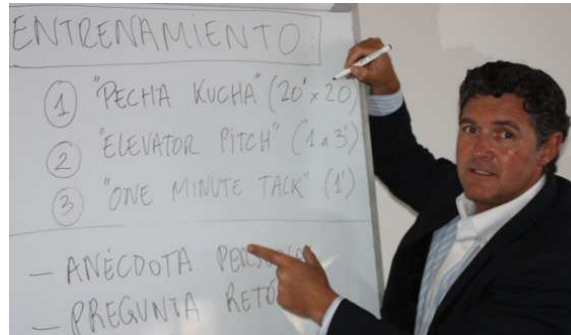 ENTRENAMIENTO:
① "PECHA KUCHA" (20'x20)
② "ELEVATOR PITCH" (1 a 3')
③ "ONE MINUTE TALK" (1')
- ANÉCDOTA
- PREGUNTA